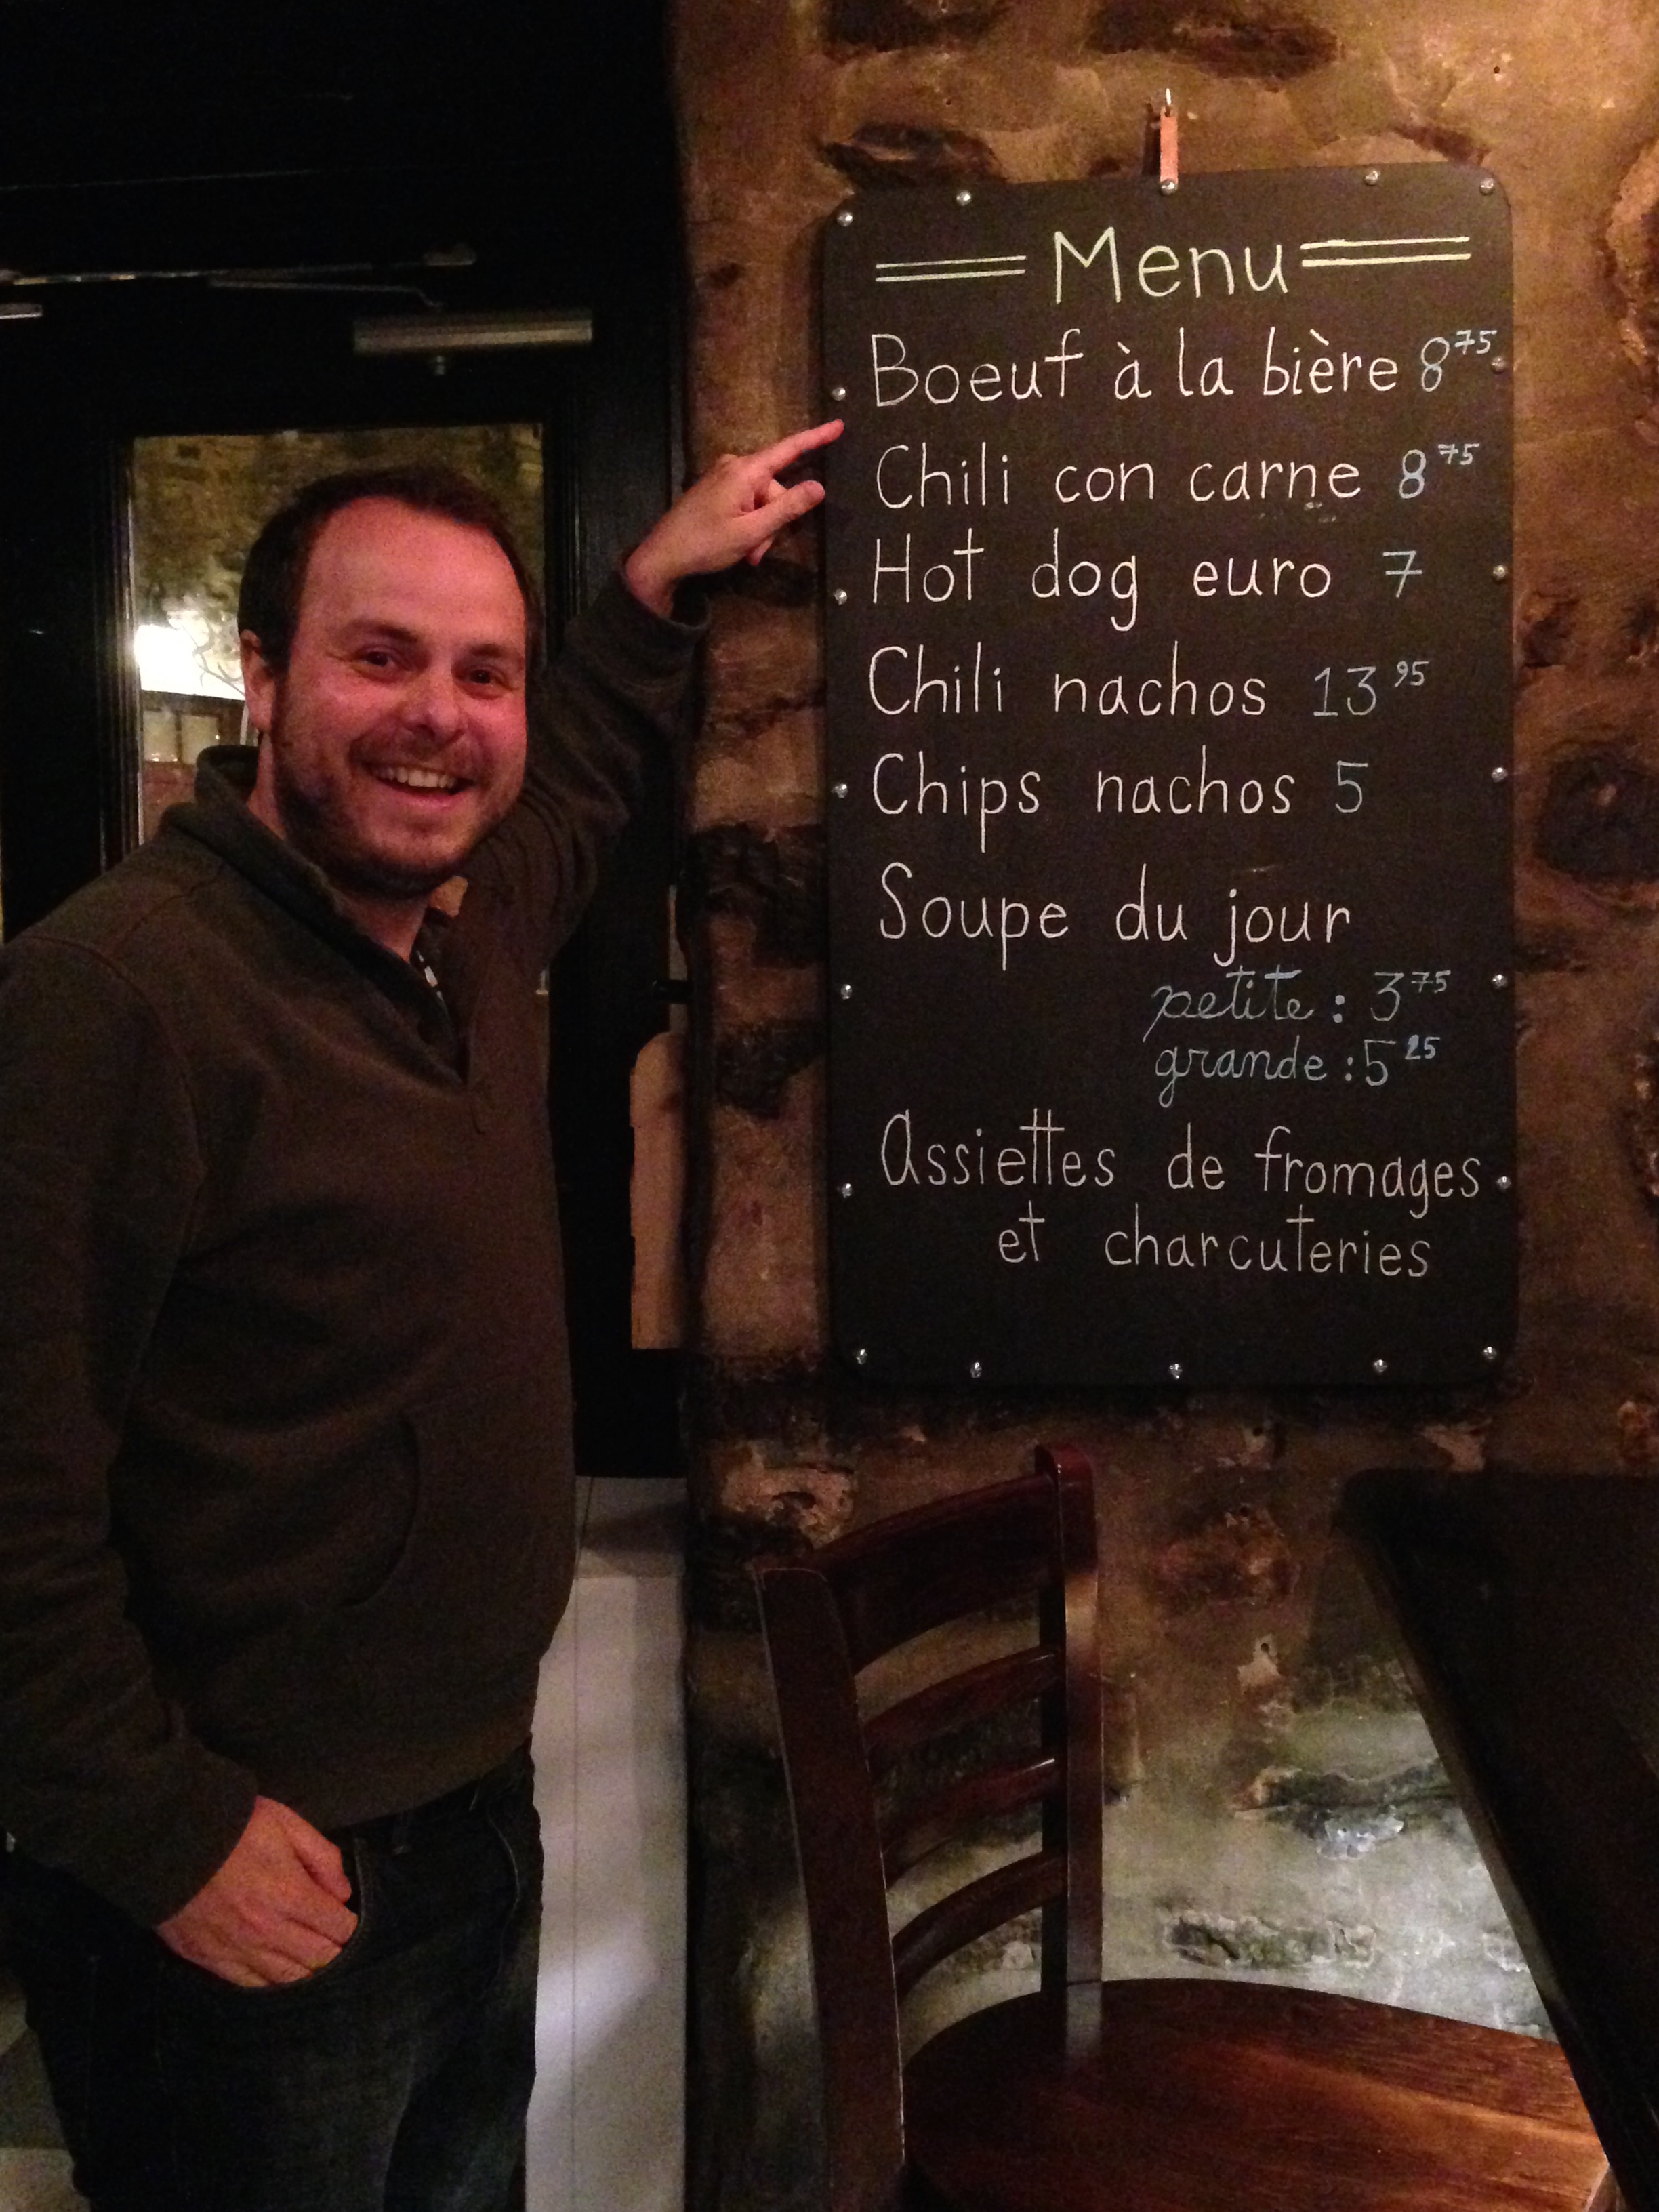 Menu
Boeuf à la bière 8 75
Chili con carne 8 75
Hot dog euro 7
Chili nachos 13 95
Chips nachos 5
Soupe du jour
petite : 3 75
grande : 5 25
Assiettes de fromages
et charcuteries